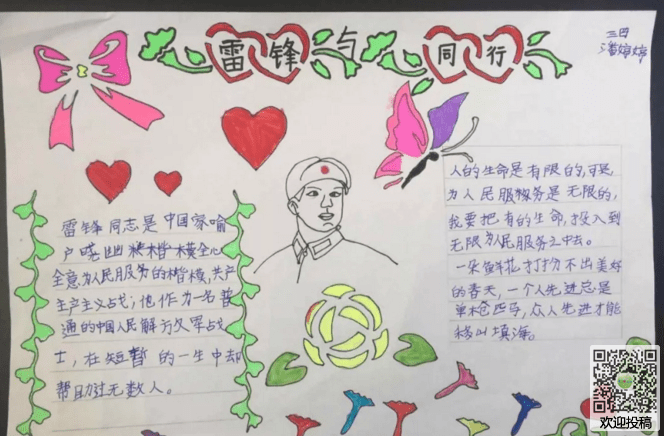 雷锋与同行
三四
潘婷婷
雷锋同志是中国家喻
户 楷模全心
全意为人民服务的楷模,共产
主产主义战;他作为一名普
通的中国人民解放军战
士,在短暂的一生中却
帮助过无数人。
人的生命是有限的,可是
为人民服务是无限的,
我要把有的生命,投入到
无限为人民服务之中去。
一朵鲜花打扮不出美好
的春天,一个人先进总是
单枪匹马,众人先进才能
移山填海。
欢迎投稿